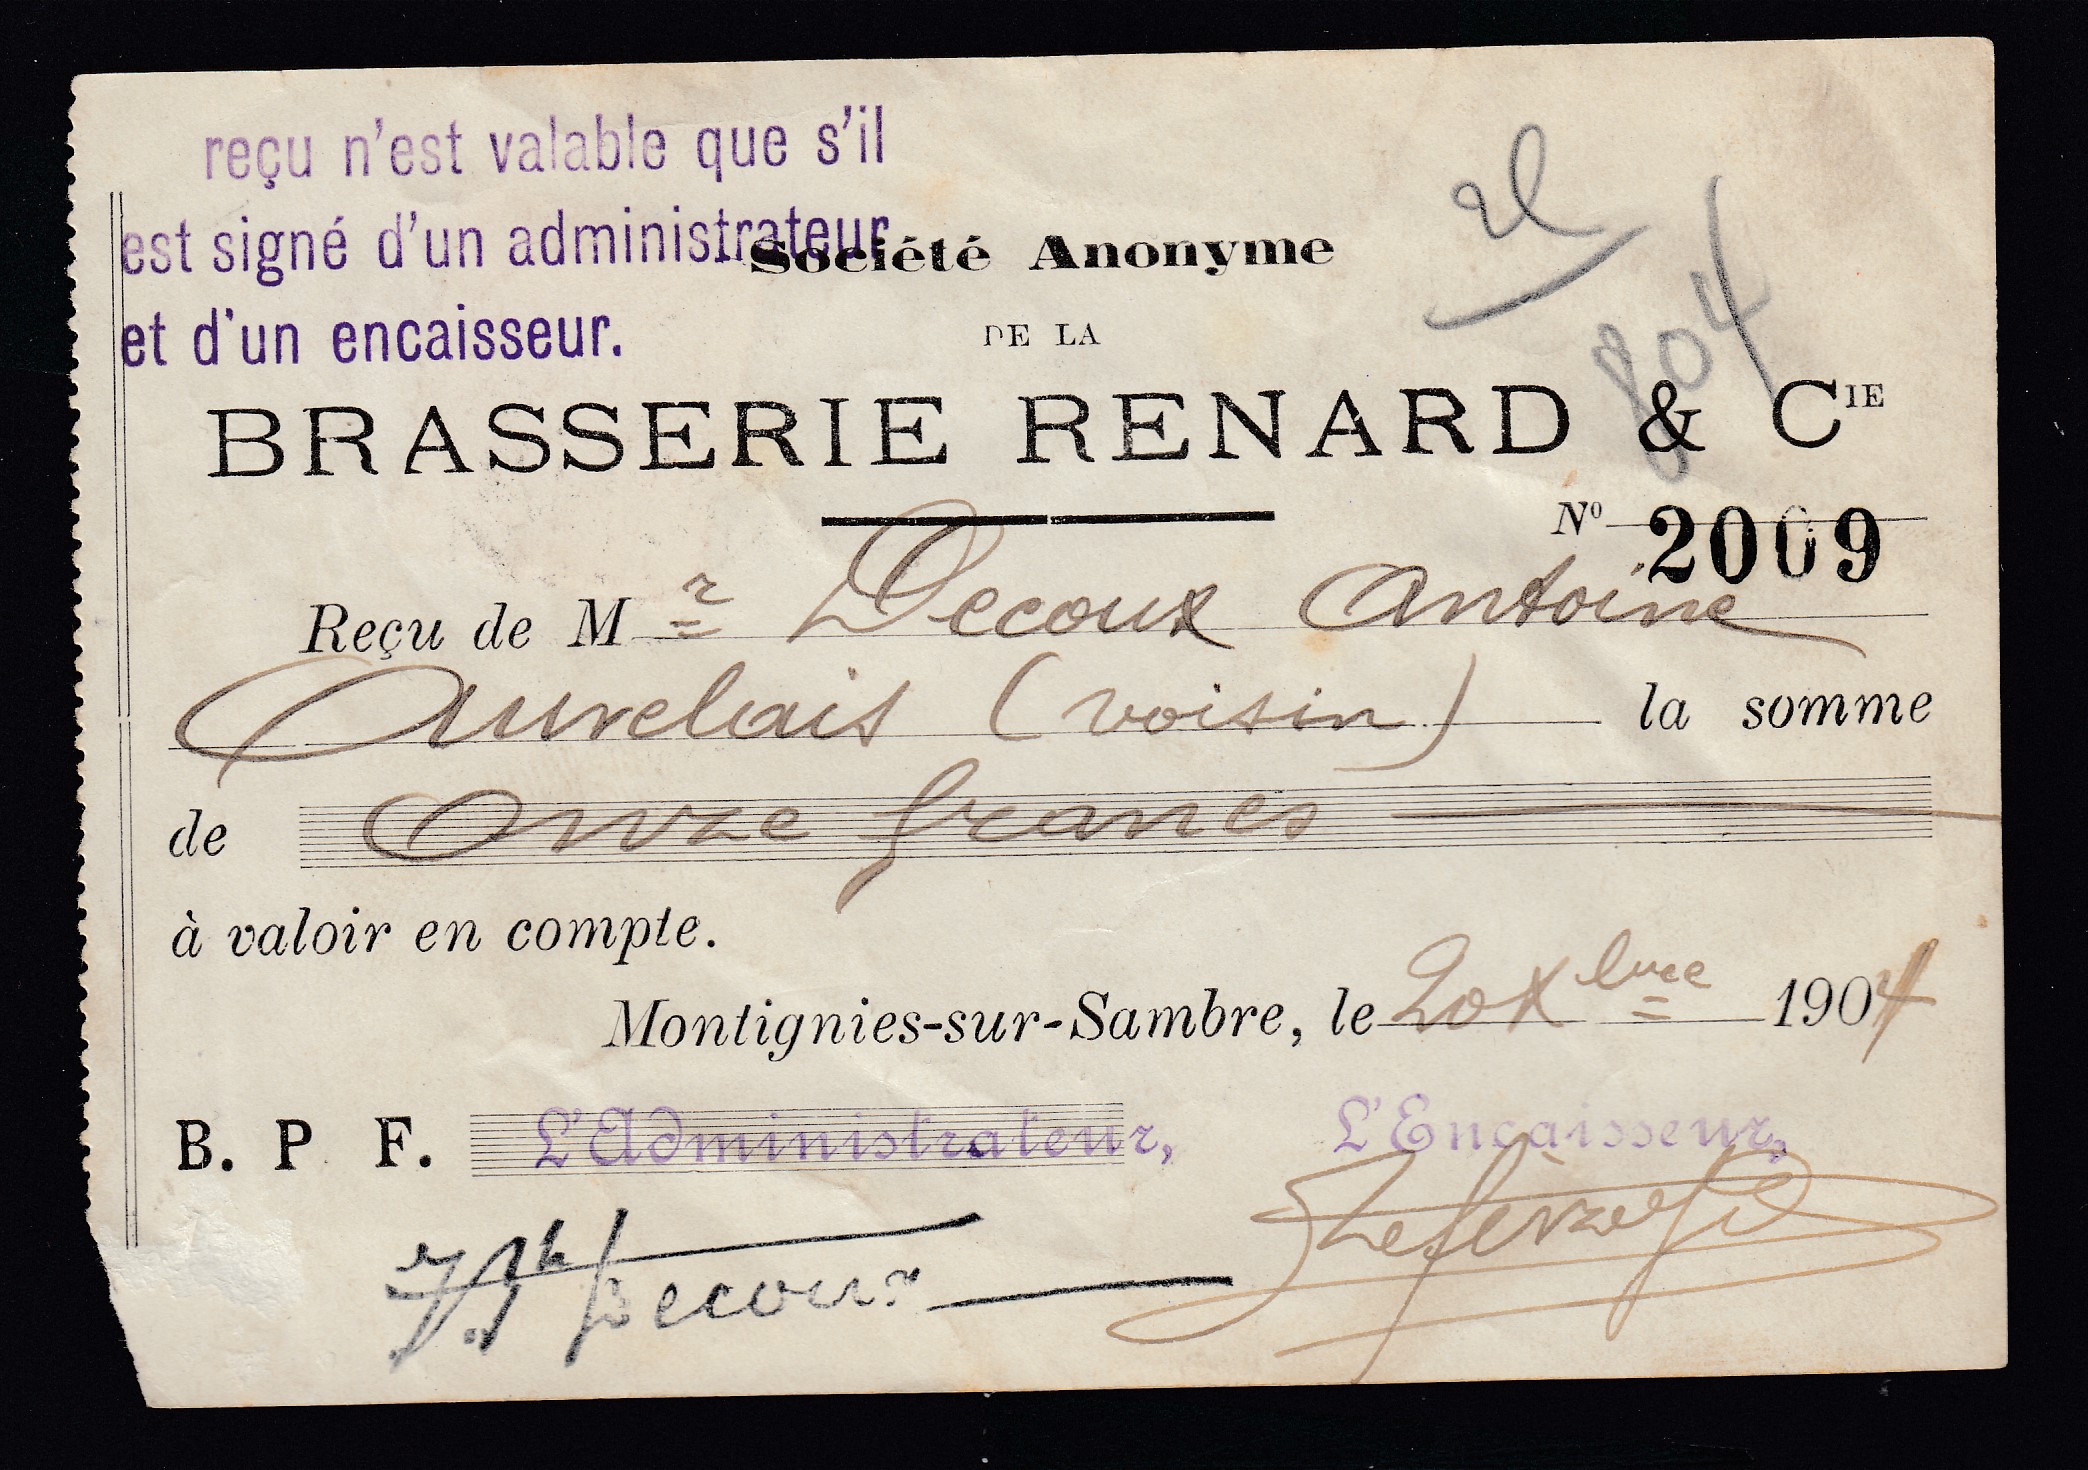 reçu n'est valable que s'il
est signé d'un administrateur
et d'un encaisseur.
Société Anonyme
DE LA
804
BRASSERIE RENARD & CIE
Nº 2009
Reçu de Mr Decoux Antoine
Aurelais (voisin) la somme
de Onze francs
à valoir en compte.
Montignies-sur-Sambre, le 20 Xbre 1904
B. P. F. L'Administrateur, L'Encaisseur,